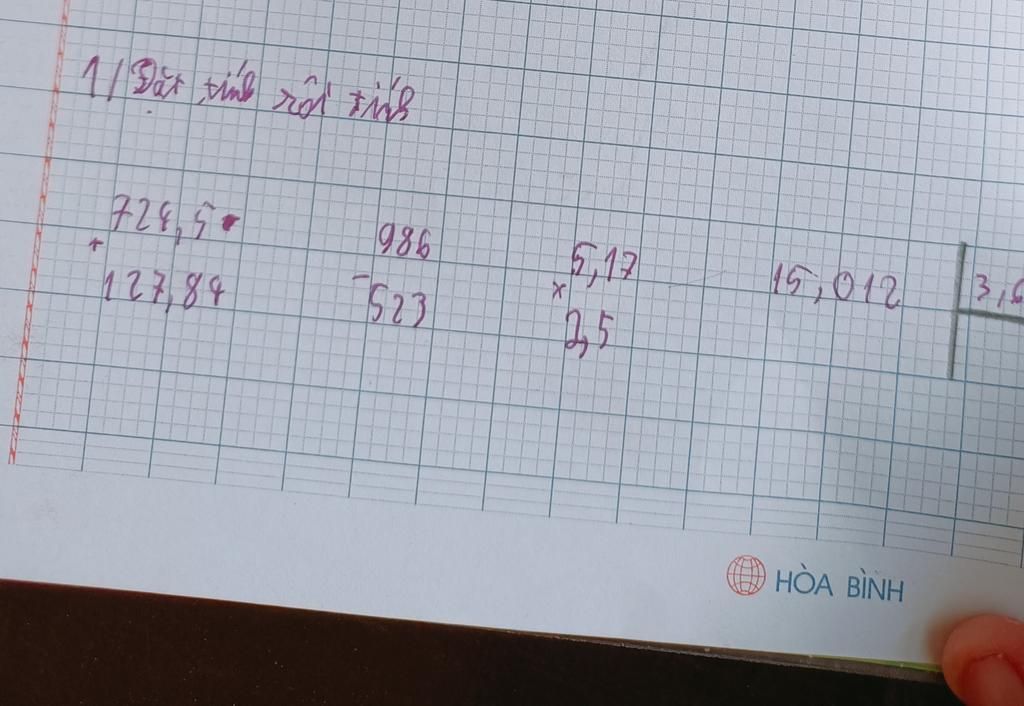 1/ Đặt tính rồi tính
724,5
+
127,84
986
-
523
5,17
x
2,5
15,012
3,6
HÒA BÌNH